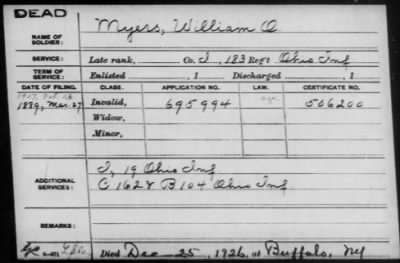 DEAD
NAME OF SOLDIER: Myers, William O.
SERVICE: Late rank, Co. I, 183 Reg't Ohio Inf
TERM OF SERVICE: Enlisted , 1 Discharged , 1
DATE OF FILING. CLASS. APPLICATION NO. LAW. CERTIFICATE NO.
1889, Mar. 27 Invalid, 695994 506200
Widow,
Minor,
ADDITIONAL SERVICES: I, 19 Ohio Inf
C 162 & B 104 Ohio Inf
REMARKS:
Died Dec 25, 1926, at Buffalo, NY